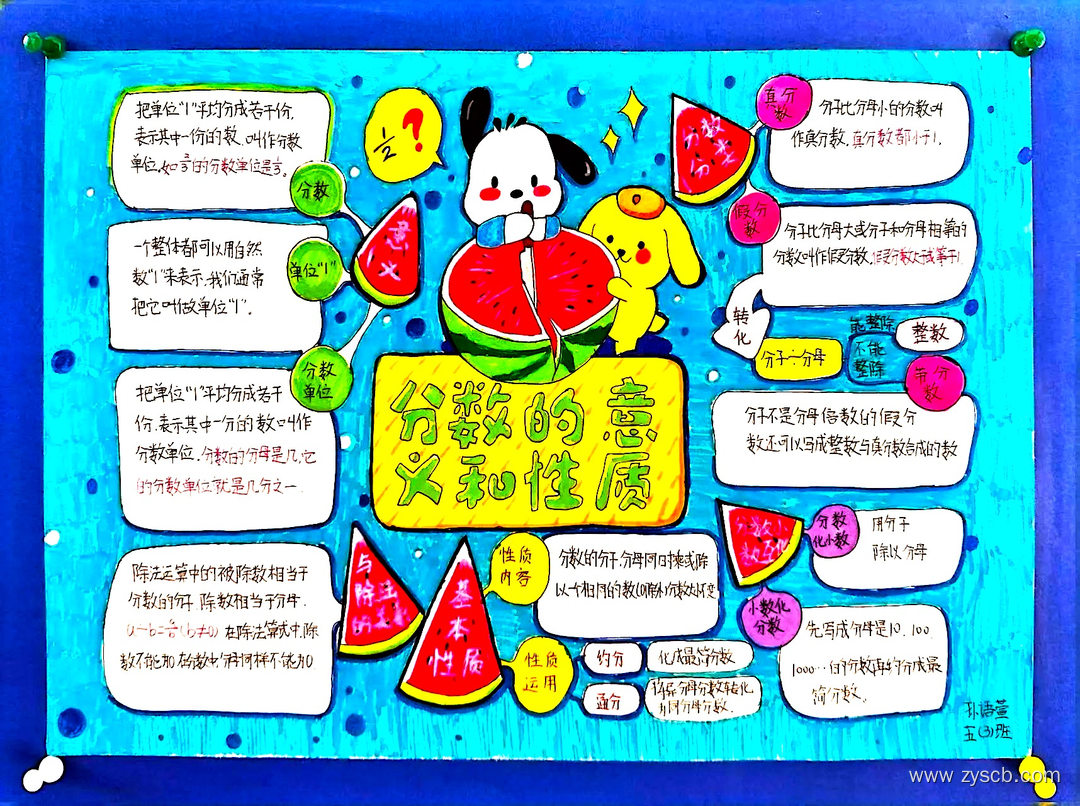 分数的意
义和性质
1/2 ?
意义
分数
把单位“1”平均分成若干份,
表示其中一份的数,叫作分数
单位。
单位“1”
一个整体都可以用自然
数“1”来表示,我们通常
把它叫做单位“1”。
分数
单位
把单位“1”平均分成若干
份,表示其中一份的数叫作
分数单位,分数的分母是几,它
的分数单位就是几分之一.
除法运算中的被除数相当于
分数的分子,除数相当于分母.
在除法算式中,除
基本性质
性质
内容
分数的分子,分母同时乘或除
性质
运用
约分
化成最简分数
通分
分数
分类
真分
数
分子比分母小的分数叫
作真分数,真分数都小于1.
假分
数
分子比分母大或分子和分母相等的
分数叫作假分数,假分数大于或等于1.
转化
分子÷分母
能整除
整数
不能
整除
带分
数
分子不是分母倍数的假分
数还可以写成整数与真分数合成的数
分数
化小数
用分子
除以分母
小数化
分数
先写成分母是10、100
1000…的分数再约分成最
简分数.
孙语萱
五(3)班
www zyscb.com